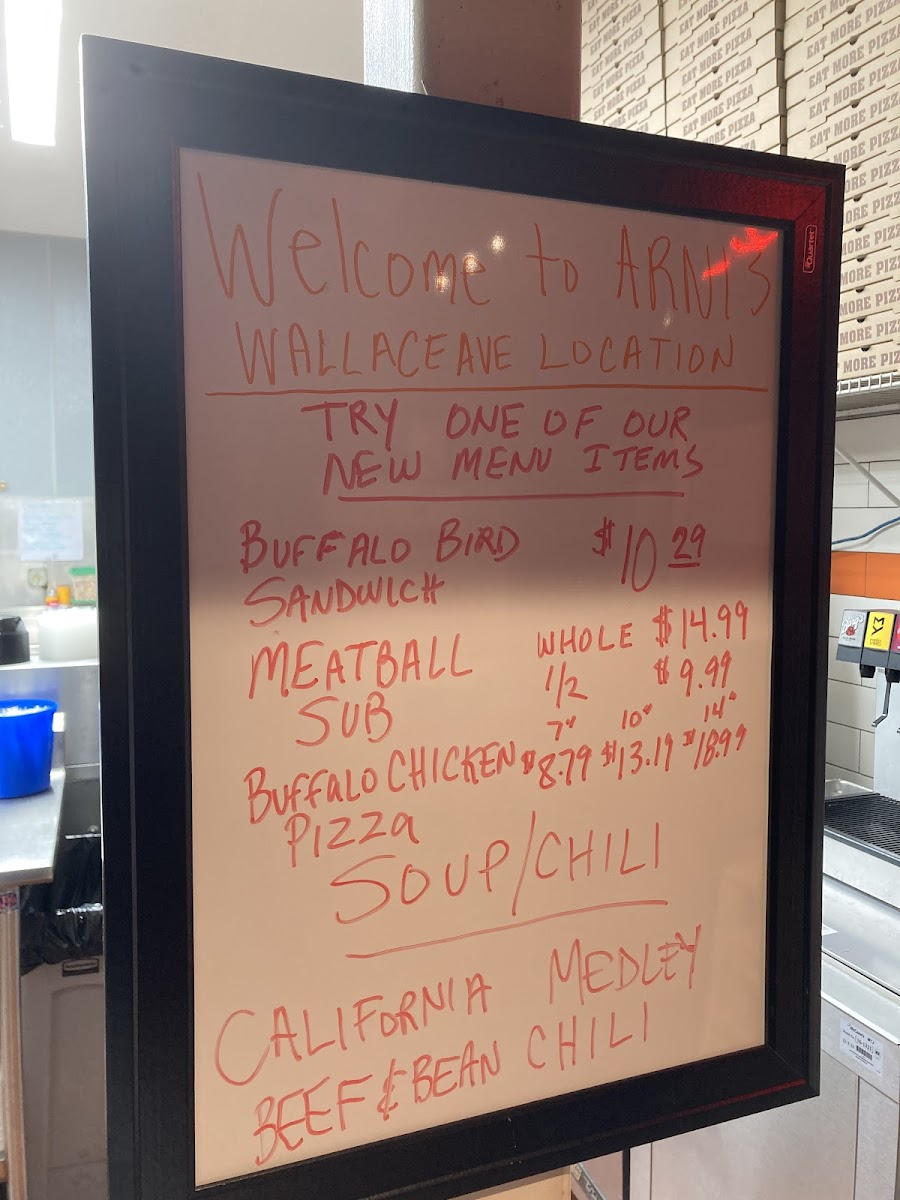 Welcome to ARNI'S
WALLACE AVE LOCATION
TRY ONE OF OUR
NEW MENU ITEMS
BUFFALO BIRD $10 29
SANDWICH
MEATBALL WHOLE $14.99
SUB 1/2 $9.99
7" 10" 14"
BUFFALO CHICKEN $8.79 $13.19 $18.99
PIZZA
SOUP/CHILI
CALIFORNIA MEDLEY
BEEF & BEAN CHILI
Quartet
EAT MORE PIZZA
EAT MORE PIZZA
EAT MORE PIZZA
EAT MORE PIZZA
EAT MORE PIZZA
EAT MORE PIZZA
MORE PIZZ
MORE PIZZ
MORE PIZZ